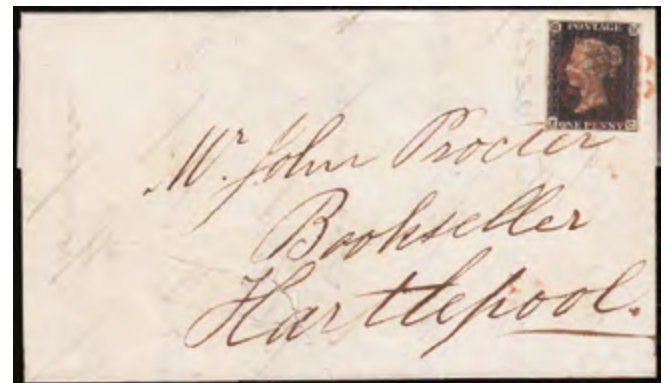 POSTAGE
ONE PENNY
Mr. John Procter
Bookseller
Hartlepool.